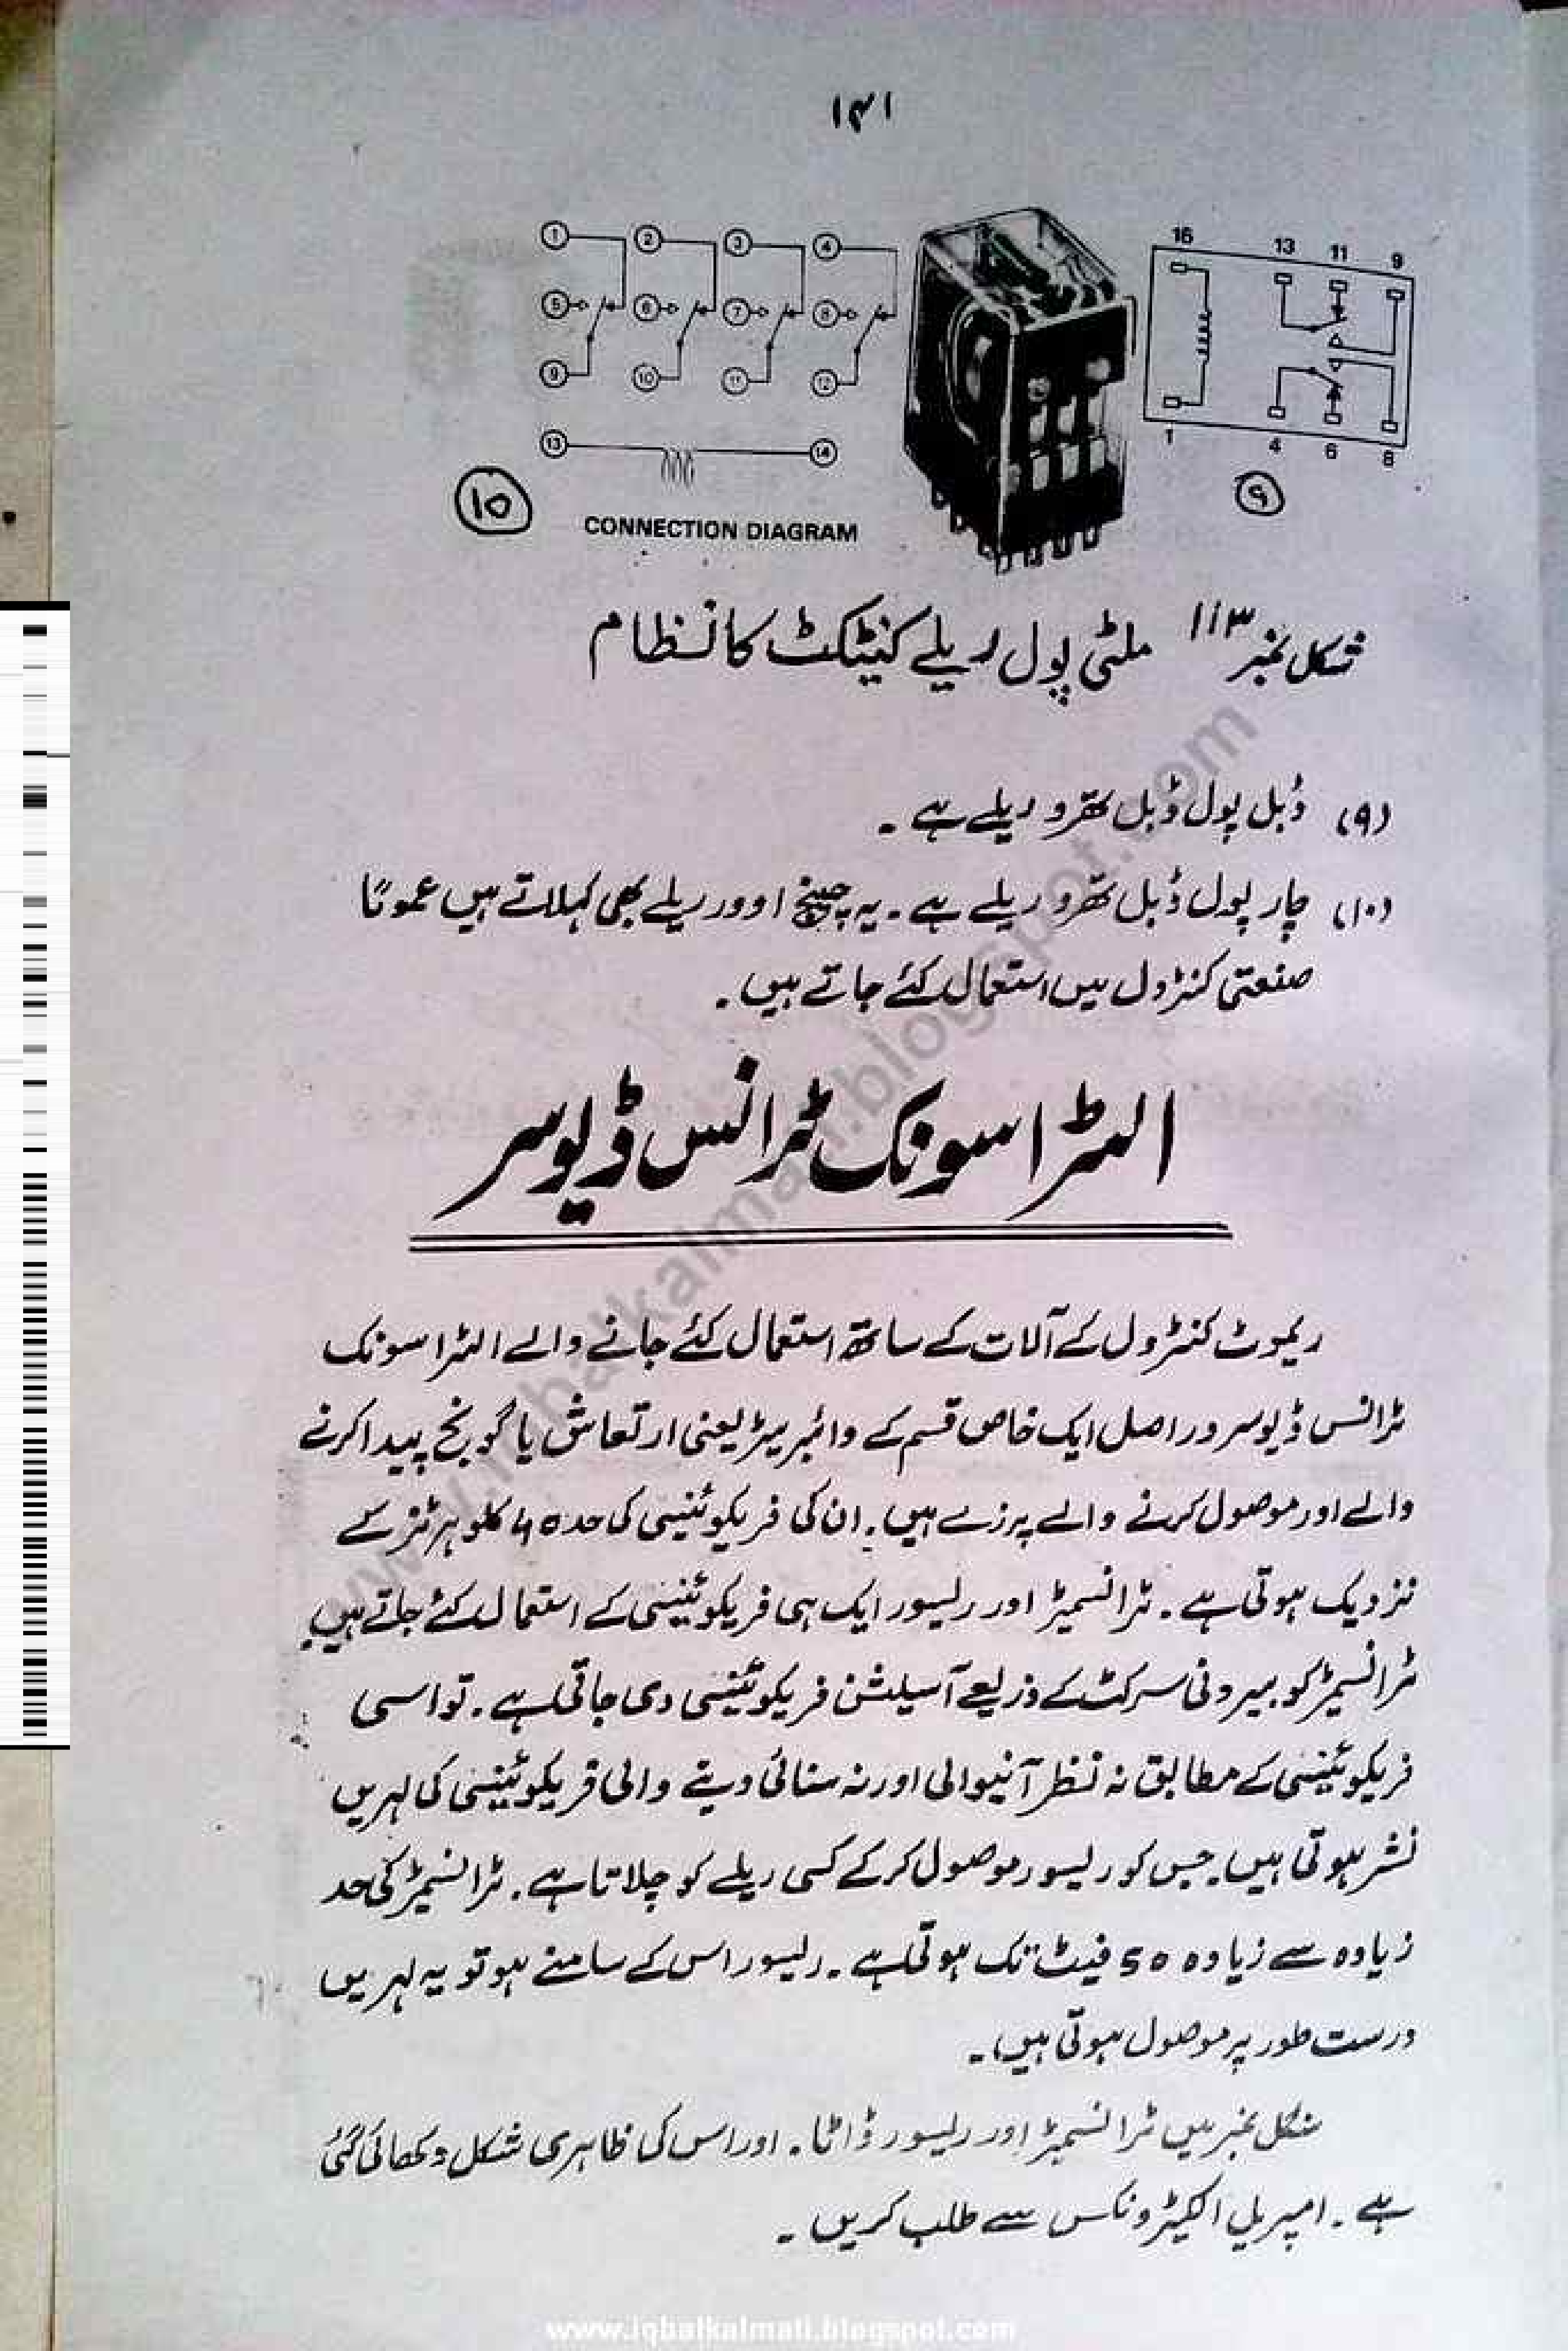 ۱۴۱
1 2 3 4
5 6 7 8
9 10 11 12
13 14
10
CONNECTION DIAGRAM
16 13 11 9
1 4 6 8
۹
شکل نمبر ۱۱۳ ملٹی پول ریلے کنیٹکٹ کا نظام
(۹) ڈبل پول ڈبل تھرو ریلے ہے ۔
(۱۰) چار پول ڈبل تھرو ریلے ہے ۔ یہ چینج اوور ریلے بھی کہلاتے ہیں عموماً
صنعتی کنٹرول میں استعمال کئے جاتے ہیں ۔
الٹراسونک ٹرانس ڈیوسر
ریموٹ کنٹرول کے آلات کے ساتھ استعمال کئے جانے والے الٹراسونک
ٹرانس ڈیوسر دراصل ایک خاص قسم کے وائبریٹر یعنی ارتعاش یا گونج پیدا کرنے
والے اور موصول کرنے والے پرزے ہیں ۔ ان کی فریکوئینسی کی حد 40 کلو ہرٹز کے
نزدیک ہوتی ہے ۔ ٹرانسمیٹر اور رلیسور ایک ہی فریکوئینسی کے استعمال کئے جاتے ہیں ۔
ٹرانسمیٹر کو بیرونی سرکٹ کے ذریعے آسیلشن فریکوئینسی دی جاتی ہے ۔ تو اسی
فریکوئینسی کے مطابق نہ نظر آنیوالی اور نہ سنائی دینے والی فریکوئینسی کی لہریں
نشر ہوتی ہیں ۔ جس کو رلیسور موصول کر کے کسی ریلے کو چلاتا ہے ۔ ٹرانسمیٹر کی حد
زیادہ سے زیادہ 50 فیٹ تک ہوتی ہے ۔ رلیسور اس کے سامنے ہو تو یہ لہریں
درست طور پر موصول ہوتی ہیں ۔
شکل نمبر میں ٹرانسمیٹر اور رلیسور ڈاٹا ۔ اور اس کی ظاہری شکل دکھائی گئی
ہے ۔ امپریل الکیٹرونکس سے طلب کریں ۔
www.iqbalkalmati.blogspot.com
www.iqbalkalmati.blogspot.com